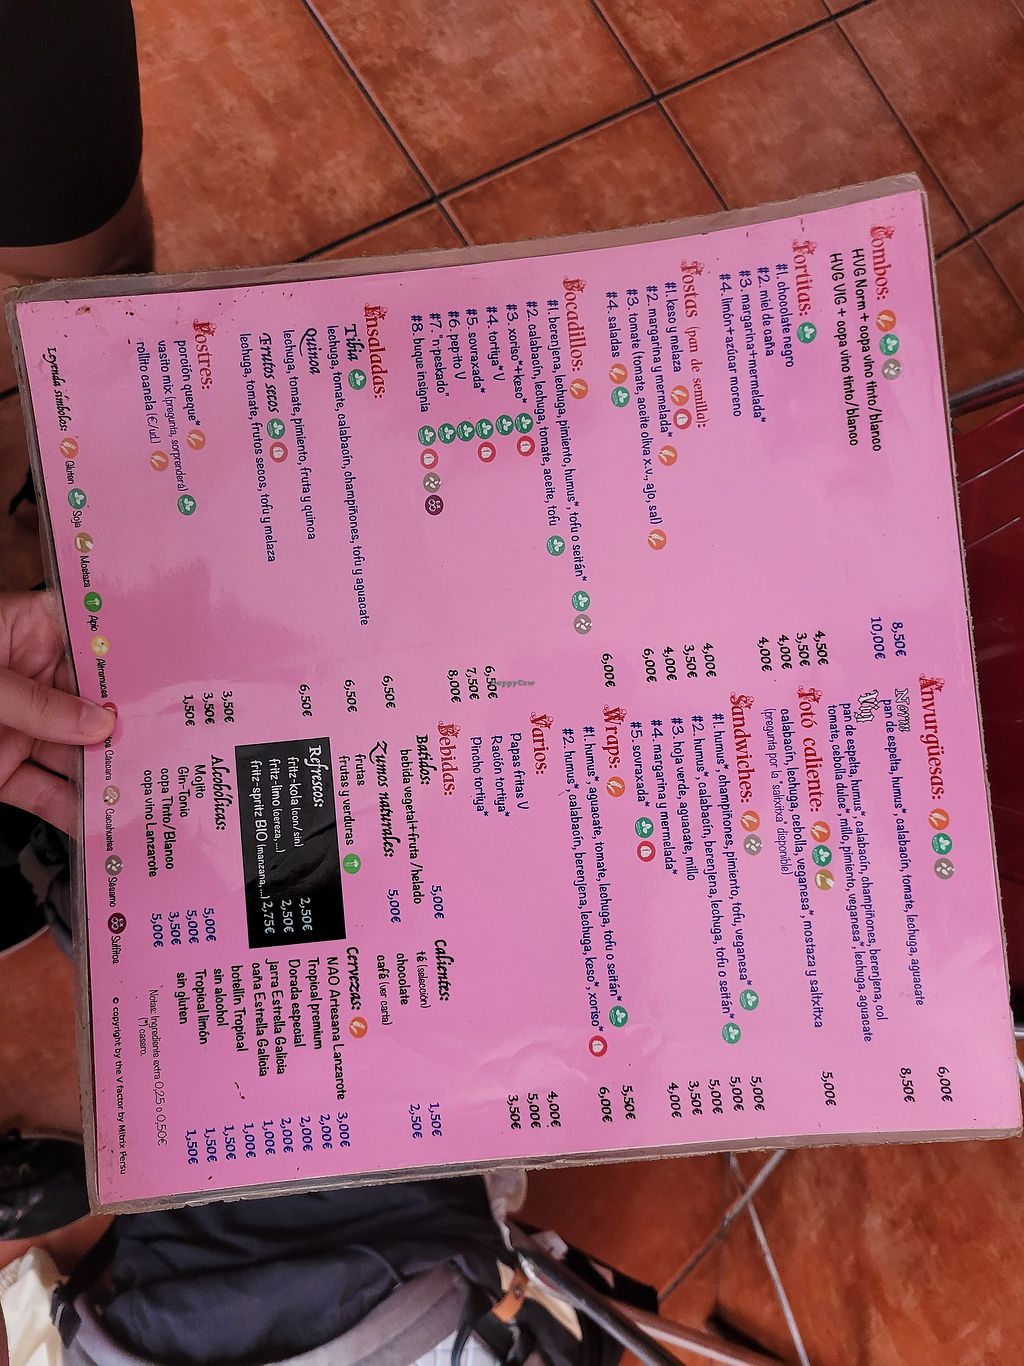 Combos:
HVG Norm + copa vino tinto/blanco 8,50€
HVG VIIG + copa vino tinto/blanco 10,00€
Tortitas:
#1. chocolate negro 4,50€
#2. miel de caña 3,50€
#3. margarina+mermelada* 4,00€
#4. limón+azúcar moreno 4,00€
Tostas (pan de semilla):
#1. keso y melaza 4,00€
#2. margarina y mermelada* 3,50€
#3. tomate (tomate, aceite oliva x.v., ajo, sal) 4,00€
#4. saladas 6,00€
Bocadillos: 6,00€
#1. berenjena, lechuga, pimiento, humus*, tofu o seitán*
#2. calabacín, lechuga, tomate, aceite, tofu
#3. xoriso*+keso*
#4. tortiya* V
#5. sovraxada*
#6. pepito V 6,50€
#7. "npeskado" 7,50€
#8. buque insignia 8,00€
Ensaladas:
Tibia 6,50€
lechuga, tomate, calabacín, champiñones, tofu y aguacate
Quinoa 6,50€
lechuga, tomate, pimiento, fruta y quinoa
Frutos secos 6,50€
lechuga, tomate, frutos secos, tofu y melaza
Postres:
porción queque* 3,50€
vasito mix (pregunta, sorprenderá) 3,50€
rollito canela (€/ud.) 1,50€
Anvurgüesas:
Norm 6,00€
pan de espelta, humus*, calabacín, tomate, lechuga, aguacate
VIIG 8,50€
pan de espelta, humus*, calabacín, champiñones, berenjena, col
tomate, cebolla dulce*, millo, pimiento, veganesa*, lechuga, aguacate
Totó caliente: 5,00€
calabacín, lechuga, cebolla, veganesa*, mostaza y saltxitxa
(pregunta por la "saltxitxa" disponible)
Sandwiches:
#1. humus*, champiñones, pimiento, tofu, veganesa* 5,00€
#2. humus*, calabacín, berenjena, lechuga, tofu o seitán* 5,00€
#3. hoja verde, aguacate, millo 5,00€
#4. margarina y mermelada* 3,50€
#5. sovraxada* 4,00€
Wraps:
#1. humus*, aguacate, tomate, lechuga, tofu o seitán* 5,50€
#2. humus*, calabacín, berenjena, lechuga, keso*, xoriso* 6,00€
Varios:
Papas fritas V 4,00€
Ración tortiya* 5,00€
Pincho tortiya* 3,50€
Bebidas:
Batidos:
bebida vegetal+fruta /helado 5,00€
Zumos naturales:
frutas 5,00€
frutas y verduras
Refrescos:
fritz-kola (con/sin) 2,50€
fritz-limo (cereza,...) 2,50€
fritz-spritz BIO (manzana,...) 2,75€
Alcohólicas:
Mojito 5,00€
Gin-Tonic 5,00€
copa Tinto/Blanco 3,50€
copa vino Lanzarote 5,00€
Calientes:
té (selección) 1,50€
chocolate 2,50€
café (ver carta)
Cervezas:
NAO Artesana Lanzarote 3,00€
Tropical premium 2,00€
Dorada especial 2,00€
jarra Estrella Galicia 2,00€
caña Estrella Galicia 1,00€
botellín Tropical 1,00€
sin alcohol 1,50€
Tropical limón 1,50€
sin gluten 1,50€
Notas: Ingrediente extra 0,25 o 0,50€
(*) casero.
Leyenda símbolos: Gluten Soja Mostaza Apio Altramuces Cáscara Cacahuetes Sésamo Sulfitos
© copyright by the V factor by Mitrix Persu
HappyCow